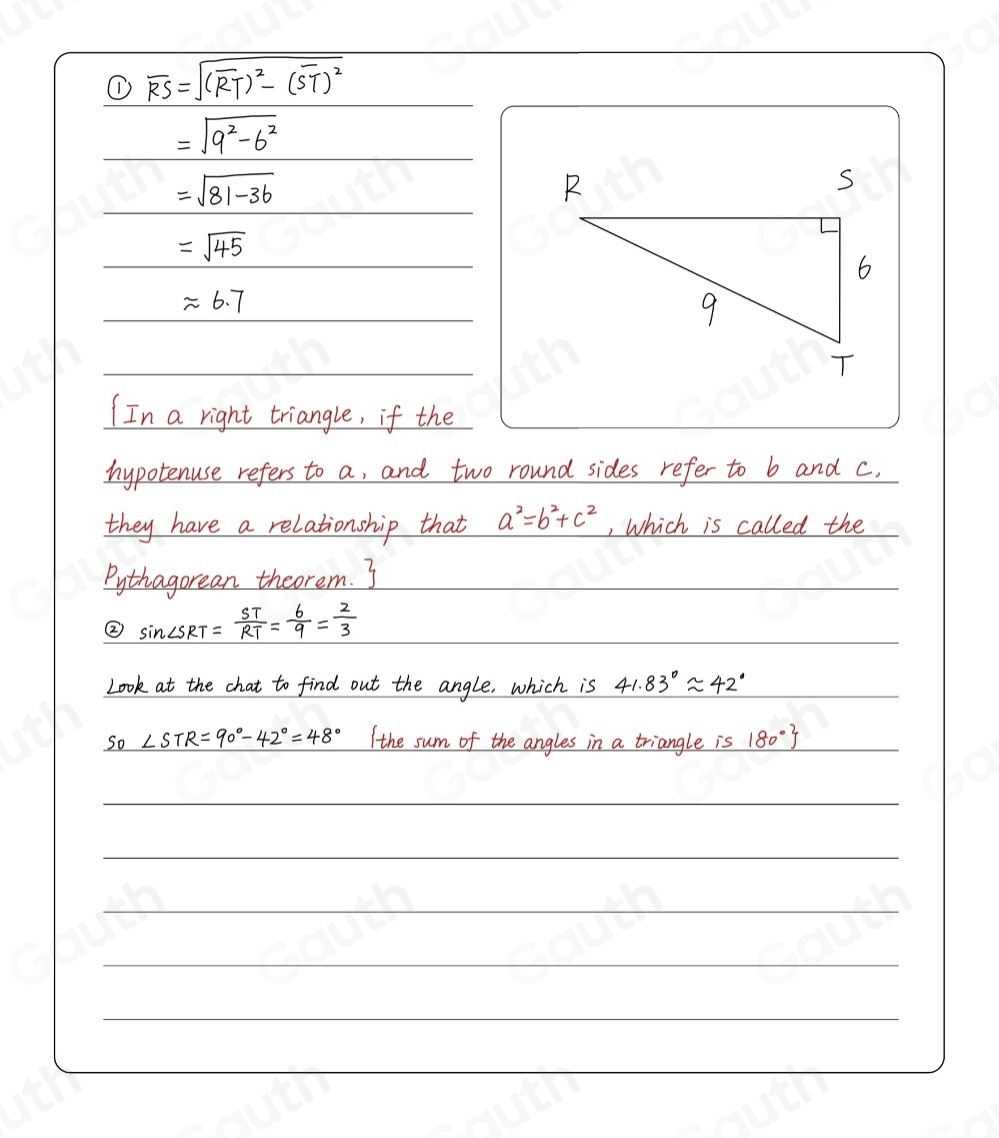 ① RS = √((RT)² - (ST)²)
= √(9² - 6²)
= √(81 - 36)
= √45
≈ 6.7
R
S
6
9
T
{In a right triangle, if the
hypotenuse refers to a, and two round sides refer to b and c,
they have a relationship that a²=b²+c², which is called the
Pythagorean theorem.}
② sin∠SRT = ST/RT = 6/9 = 2/3
Look at the chat to find out the angle, which is 41.83° ≈ 42°
So ∠STR = 90° - 42° = 48° {the sum of the angles in a triangle is 180°}
Gauth